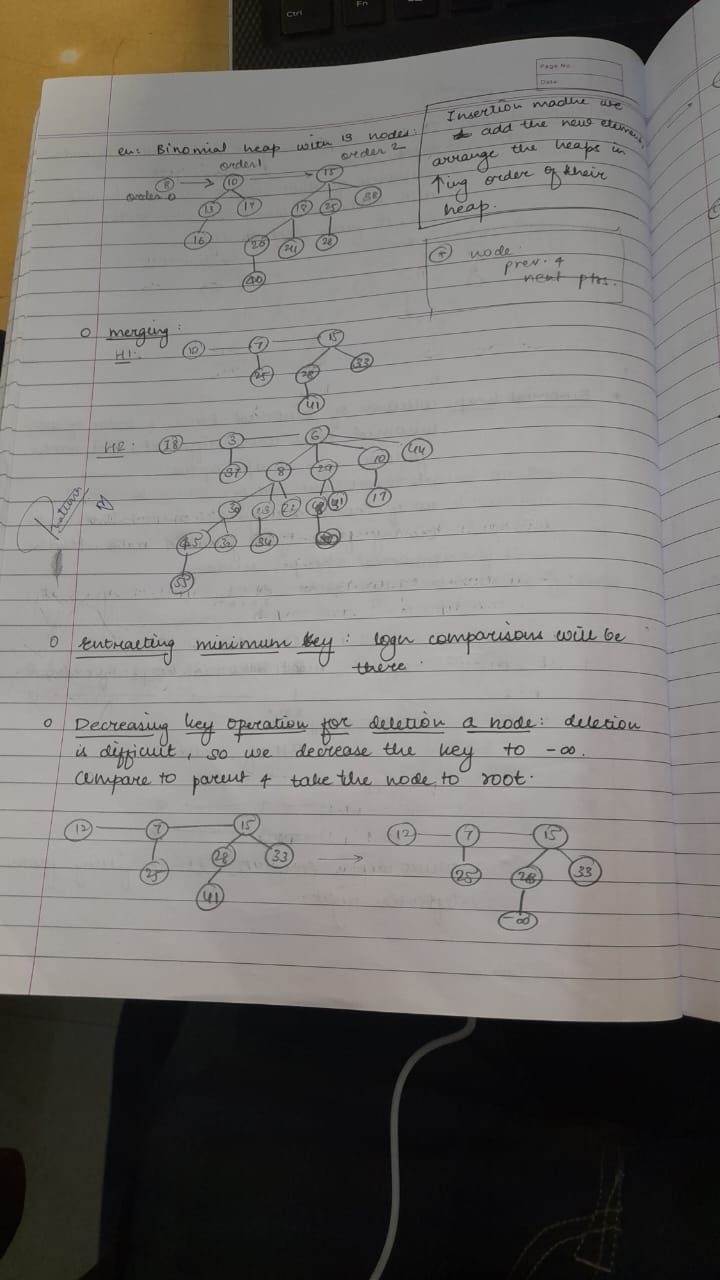 Ctrl
Fn
Page No.
Date
ex: Binomial heap with 13 nodes:
order 1
order 2
8 10 15
order 0
13 17 18 25 38
16 20 21 28
40
Insertion
we
add the new element,
arrange the heaps in
↑ing order of their
heap.
node
prev. &
next ptrs.
o merging:
H1:
10 7 15
25 28 33
41
H2: 18 3 6
37 8 29 10 44
30 23 22 17
45 32 34
55
o Extracting minimum key: logn comparisons will be
there.
o Decreasing key operation for deletion a node: deletion
is difficult, so we decrease the key to -∞.
Compare to parent & take the node to root.
12 7 15 → 12 7 15
25 28 33 25 28 33
41 -∞